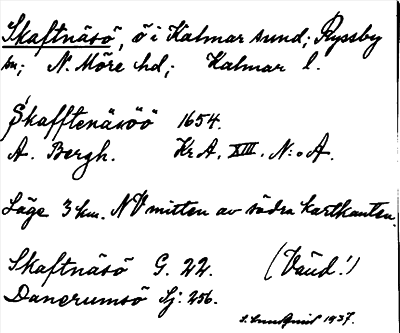 Skaftnäsö, ö i Kalmar sund; Ryssby
sn; N. Möre hd; Kalmar l.
Skafftenäsöö 1654.
A. Bergh. Kr A, XIII. N:o A.
Läge 3 km. NV mitten av södra kartkanten.
Skaftnäsö G. 22. (Vänd!)
Danerumsö Sj: 256.
1937.